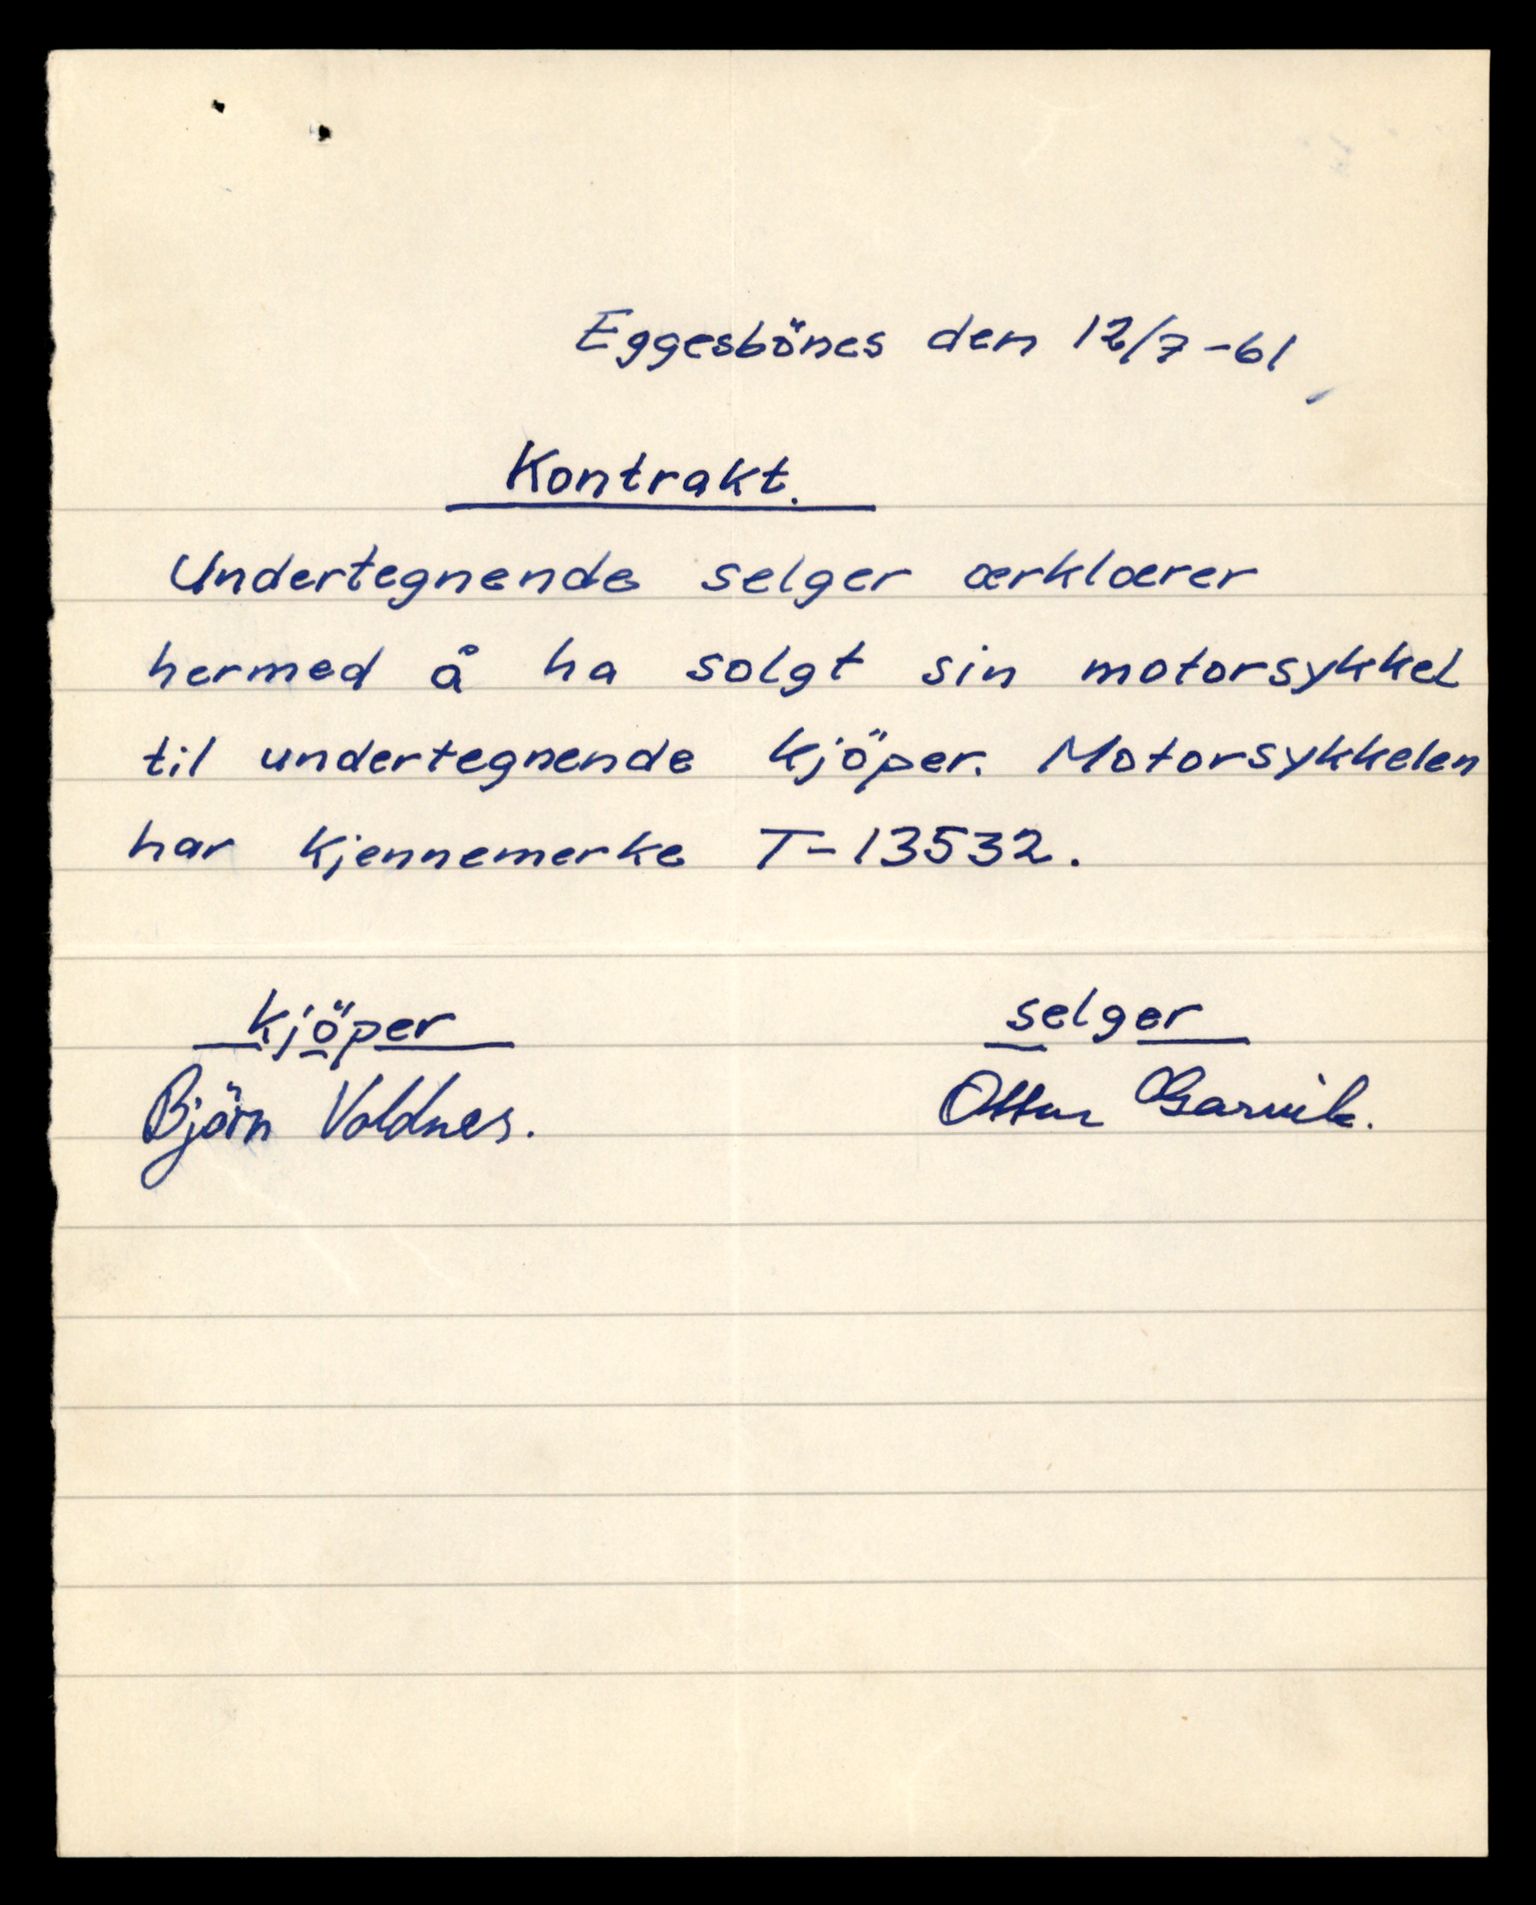 Eggesbönes den 12/7-61
Kontrakt.
Undertegnende selger ærklærer
hermed å ha solgt sin motorsykkel
til undertegnende kjöper. Motorsykkelen
har kjennemerke T-13532.
kjöper selger
Björn Voldnes. Ottar Garvik.